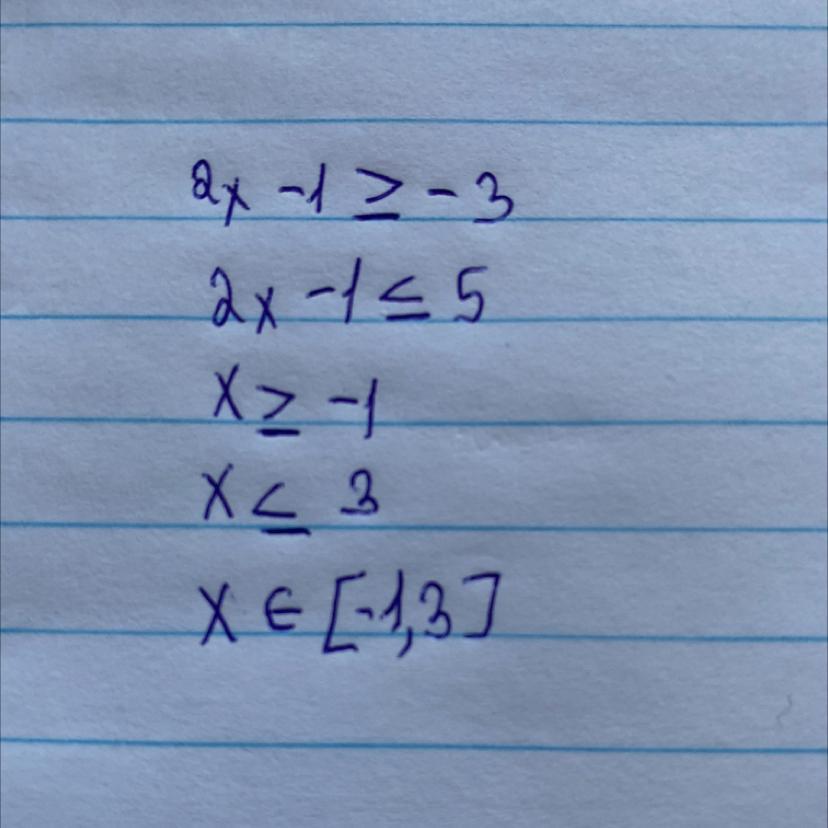 2x -1 ≥ -3
2x -1 ≤ 5
x ≥ -1
x ≤ 3
x ∈ [-1,3]